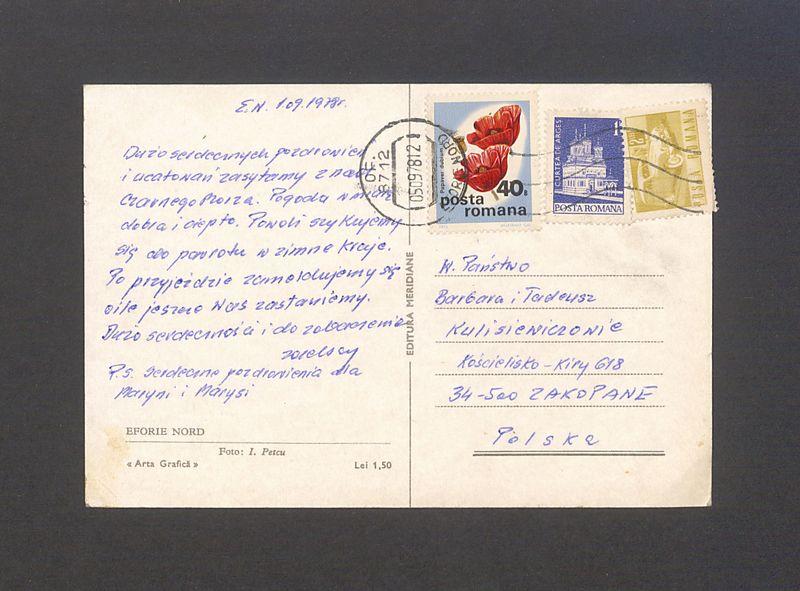 E.N. 1.09.1978r.
Dużo serdecznych pozdrowień
i ucałowań zasyłamy z nad
Czarnego Morza. Pogoda w miarę
dobra i ciepło. Powoli szykujemy
się do powrotu w zimne kraje.
Po przyjeździe zameldujemy się
o ile jeszcze Was zastaniemy.
Dużo serdeczności i do zobaczenia
P.S. Serdeczne pozdrowienia dla
Maryni i Marysi
EFORIE NORD
Foto: I. Petcu
« Arta Grafică »
Lei 1,50
EDITURA MERIDIANE
OF.
8712
05097812
NORD
40
posta
romana
1
CURTEA DE ARGES
POSTA ROMANA
POSTA ROMANA
W. Państwo
Barbara i Tadeusz
Kulisiewiczowie
Kościelisko-Kiry 618
34-500 ZAKOPANE
Polska